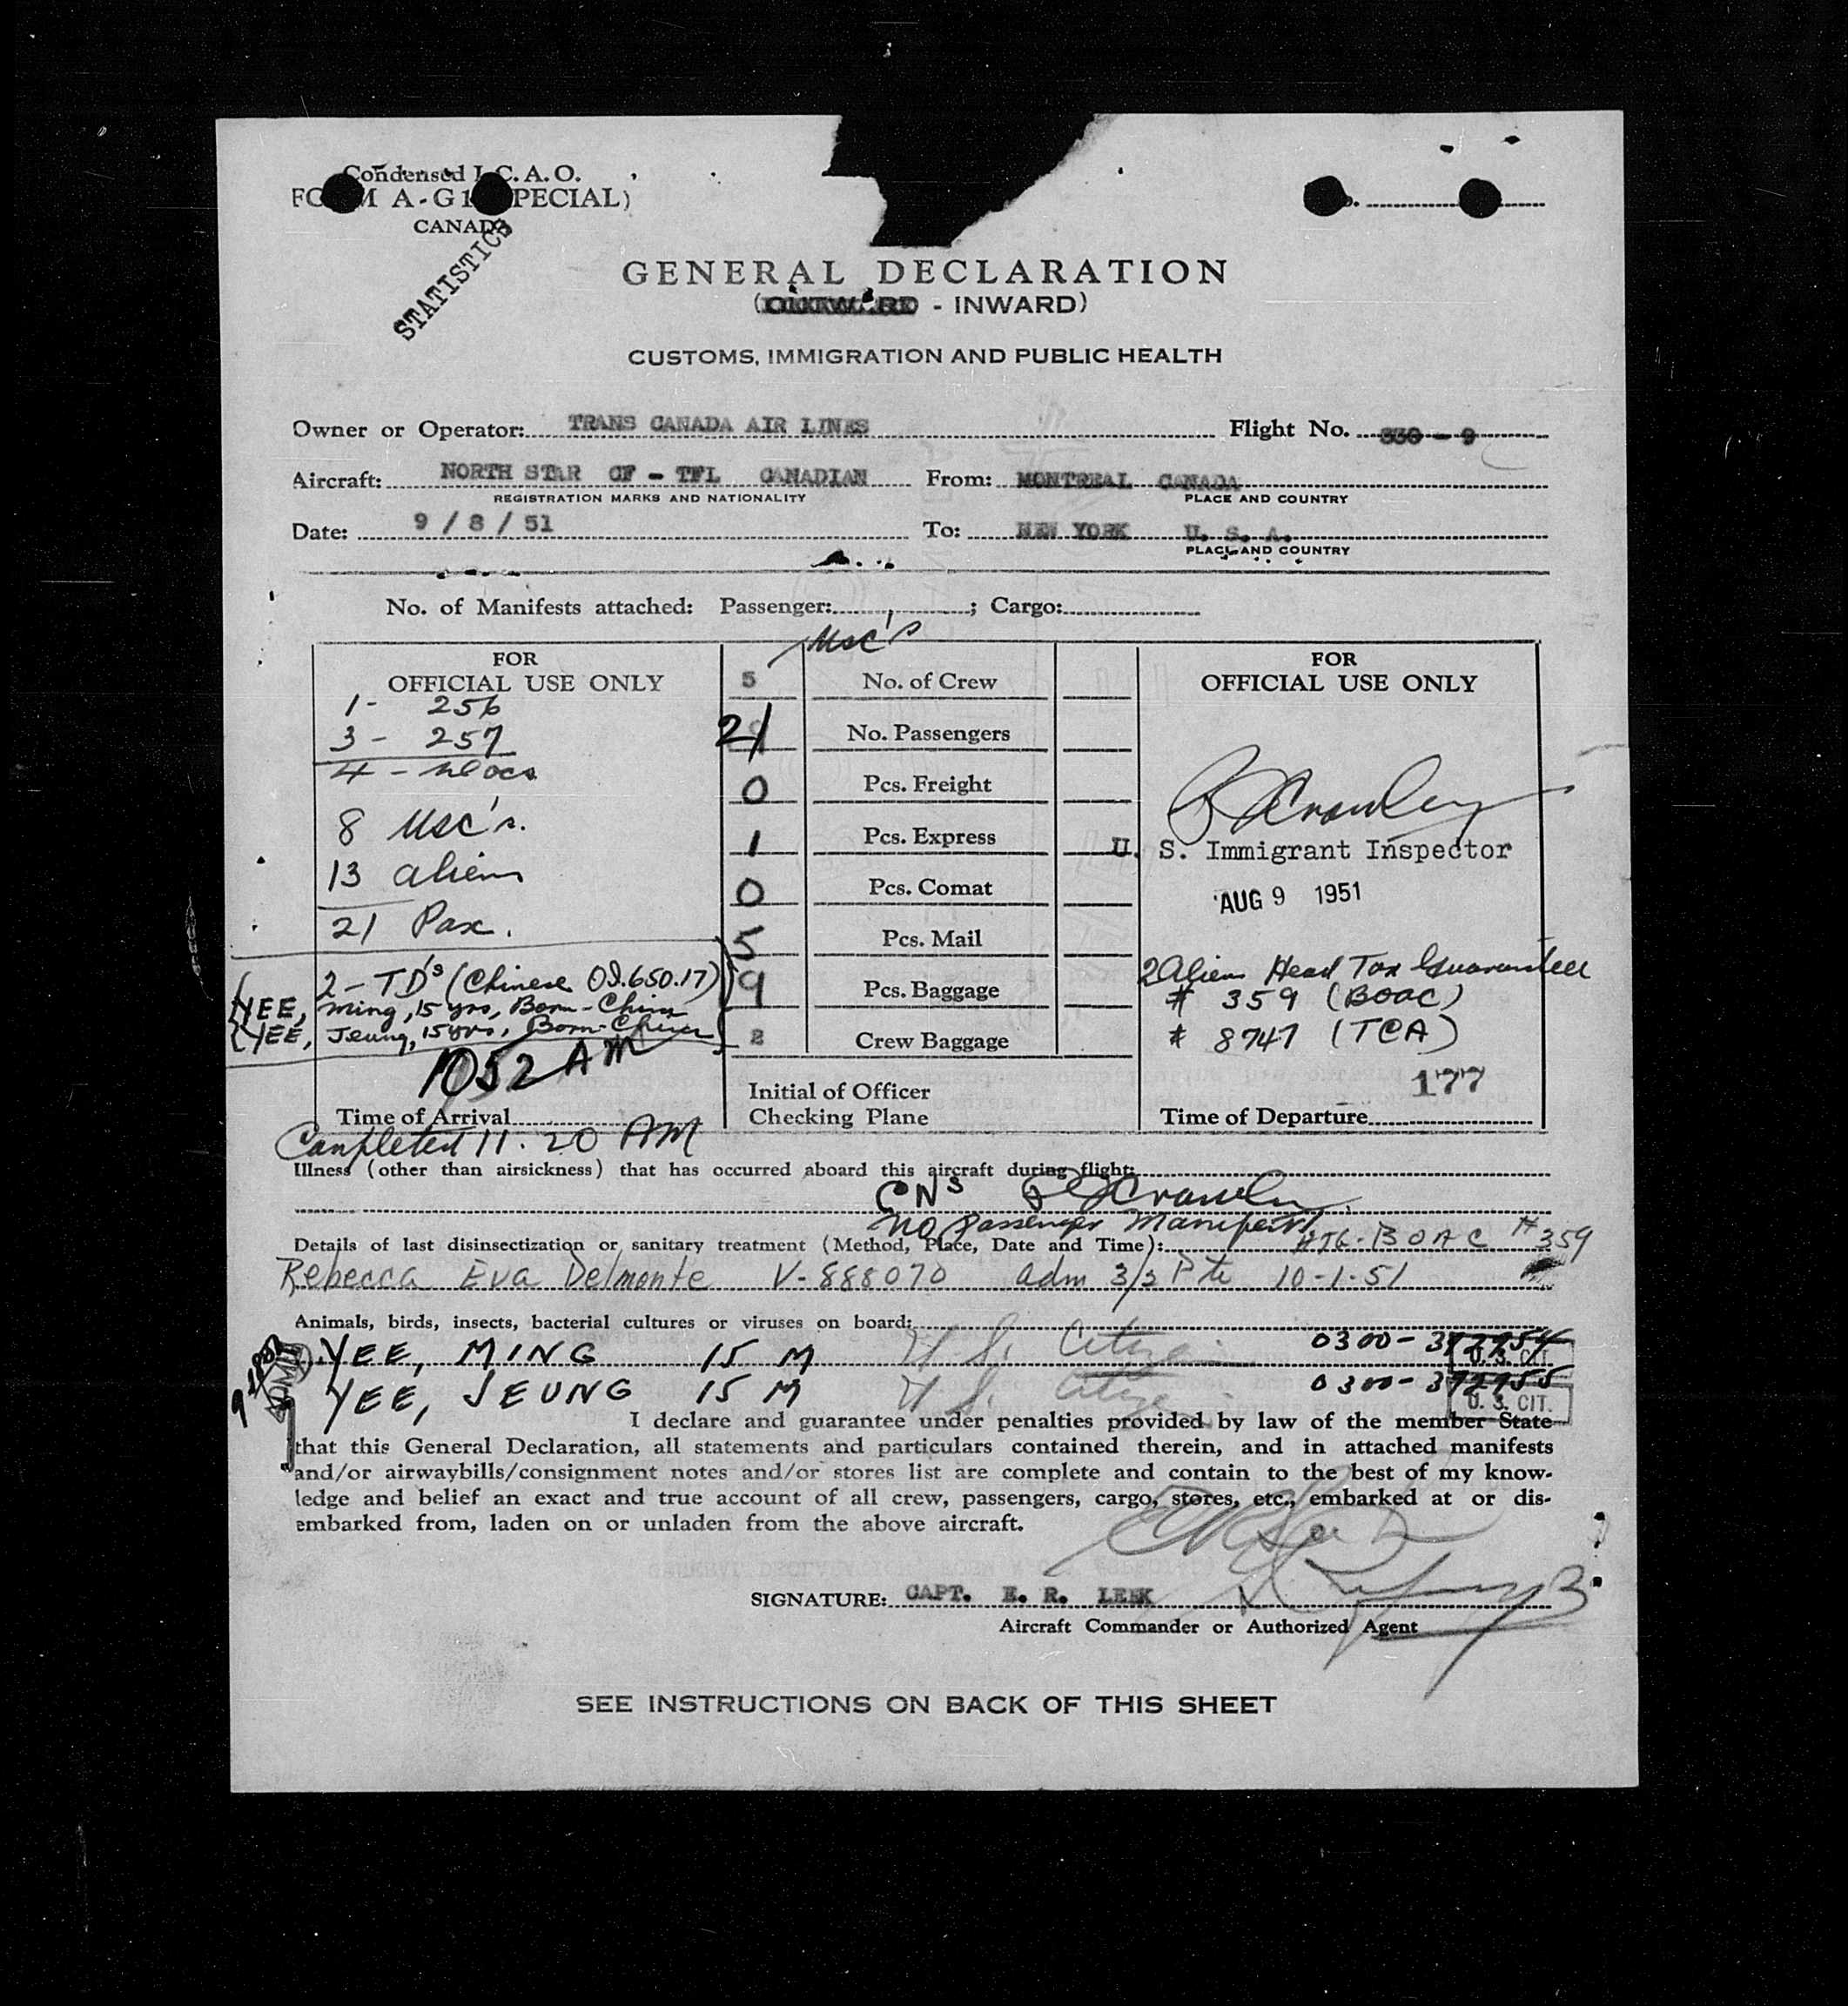 Condensed I.C.A.O.
FORM A-G1 (SPECIAL)
CANADA
STATISTICS
GENERAL DECLARATION
(OUTWARD - INWARD)
CUSTOMS, IMMIGRATION AND PUBLIC HEALTH
Owner or Operator: TRANS CANADA AIR LINES Flight No. 330 - 9
Aircraft: NORTH STAR CF - TFL CANADIAN From: MONTREAL CANADA
REGISTRATION MARKS AND NATIONALITY PLACE AND COUNTRY
Date: 9 / 8 / 51 To: NEW YORK U. S. A.
PLACE AND COUNTRY
No. of Manifests attached: Passenger: ; Cargo:
USC's
FOR OFFICIAL USE ONLY
1 - 256
3 - 257
4 - docs
8 USC's.
13 aliens
21 Pax.
2 - TD's (Chinese OI.650.17)
YEE, Ming, 15 yrs, Born - China
YEE, Jeung, 15 yrs, Born - China
1052 AM
Time of Arrival
5 No. of Crew
21 No. Passengers
0 Pcs. Freight
1 Pcs. Express
0 Pcs. Comat
5 Pcs. Mail
9 Pcs. Baggage
2 Crew Baggage
Initial of Officer
Checking Plane
FOR
OFFICIAL USE ONLY
Crowley
U. S. Immigrant Inspector
AUG 9 1951
2 Aliens Head Tax Guaranteed
# 359 (BOAC)
# 8747 (TCA)
177
Time of Departure
Completed 11.20 AM
Illness (other than airsickness) that has occurred aboard this aircraft during flight:
CNS Crowley
No passenger Manifest
Details of last disinsectization or sanitary treatment (Method, Place, Date and Time): HTG - BOAC #359
Rebecca Eva Delmonte V-888070 adm 3/2 Pte 10-1-51
Animals, birds, insects, bacterial cultures or viruses on board:
YEE, MING 15 M U S. Citizen 0300-392954 U. S. CIT.
YEE, JEUNG 15 M U S. Citizen 0300-392955 U. S. CIT.
I declare and guarantee under penalties provided by law of the member State
that this General Declaration, all statements and particulars contained therein, and in attached manifests
and/or airwaybills/consignment notes and/or stores list are complete and contain to the best of my know-
ledge and belief an exact and true account of all crew, passengers, cargo, stores, etc., embarked at or dis-
embarked from, laden on or unladen from the above aircraft.
SIGNATURE: CAPT. E. R. LEEK
Aircraft Commander or Authorized Agent
SEE INSTRUCTIONS ON BACK OF THIS SHEET